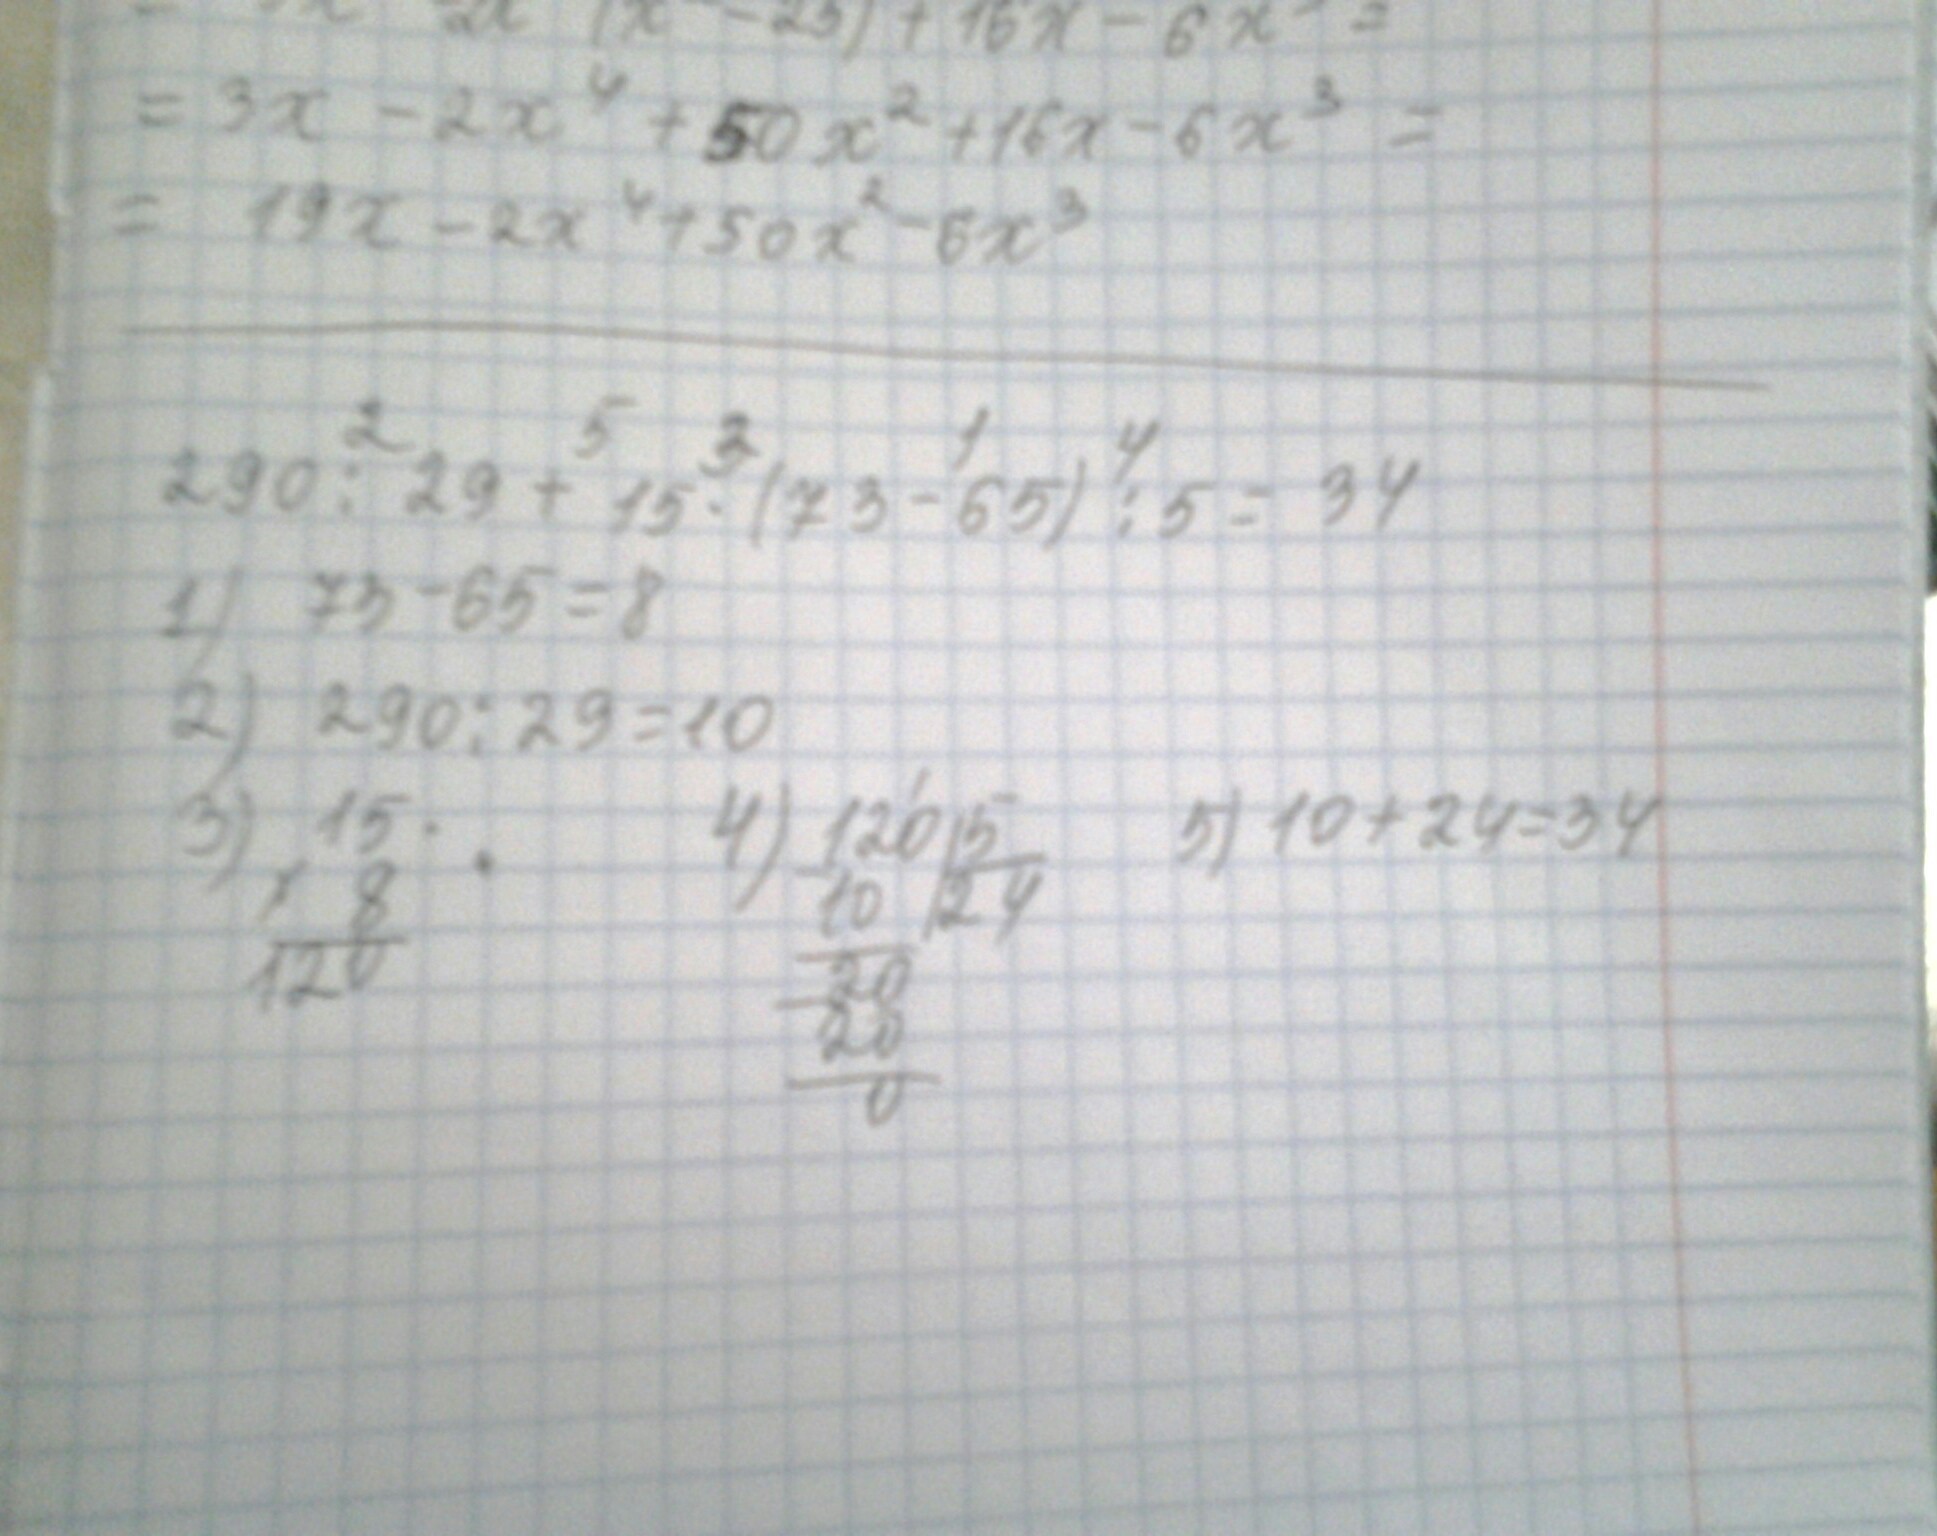 = 3x - 2x² (x² - 25) + 16x - 6x³ =
= 3x - 2x⁴ + 50x² + 16x - 6x³ =
= 19x - 2x⁴ + 50x² - 6x³
2 5 3 1 4
290 : 29 + 15 · (73 - 65) : 5 = 34
1) 73 - 65 = 8
2) 290 : 29 = 10
3) 15 4) 120 5 5) 10 + 24 = 34
× 8 10 24
120 20
20
0